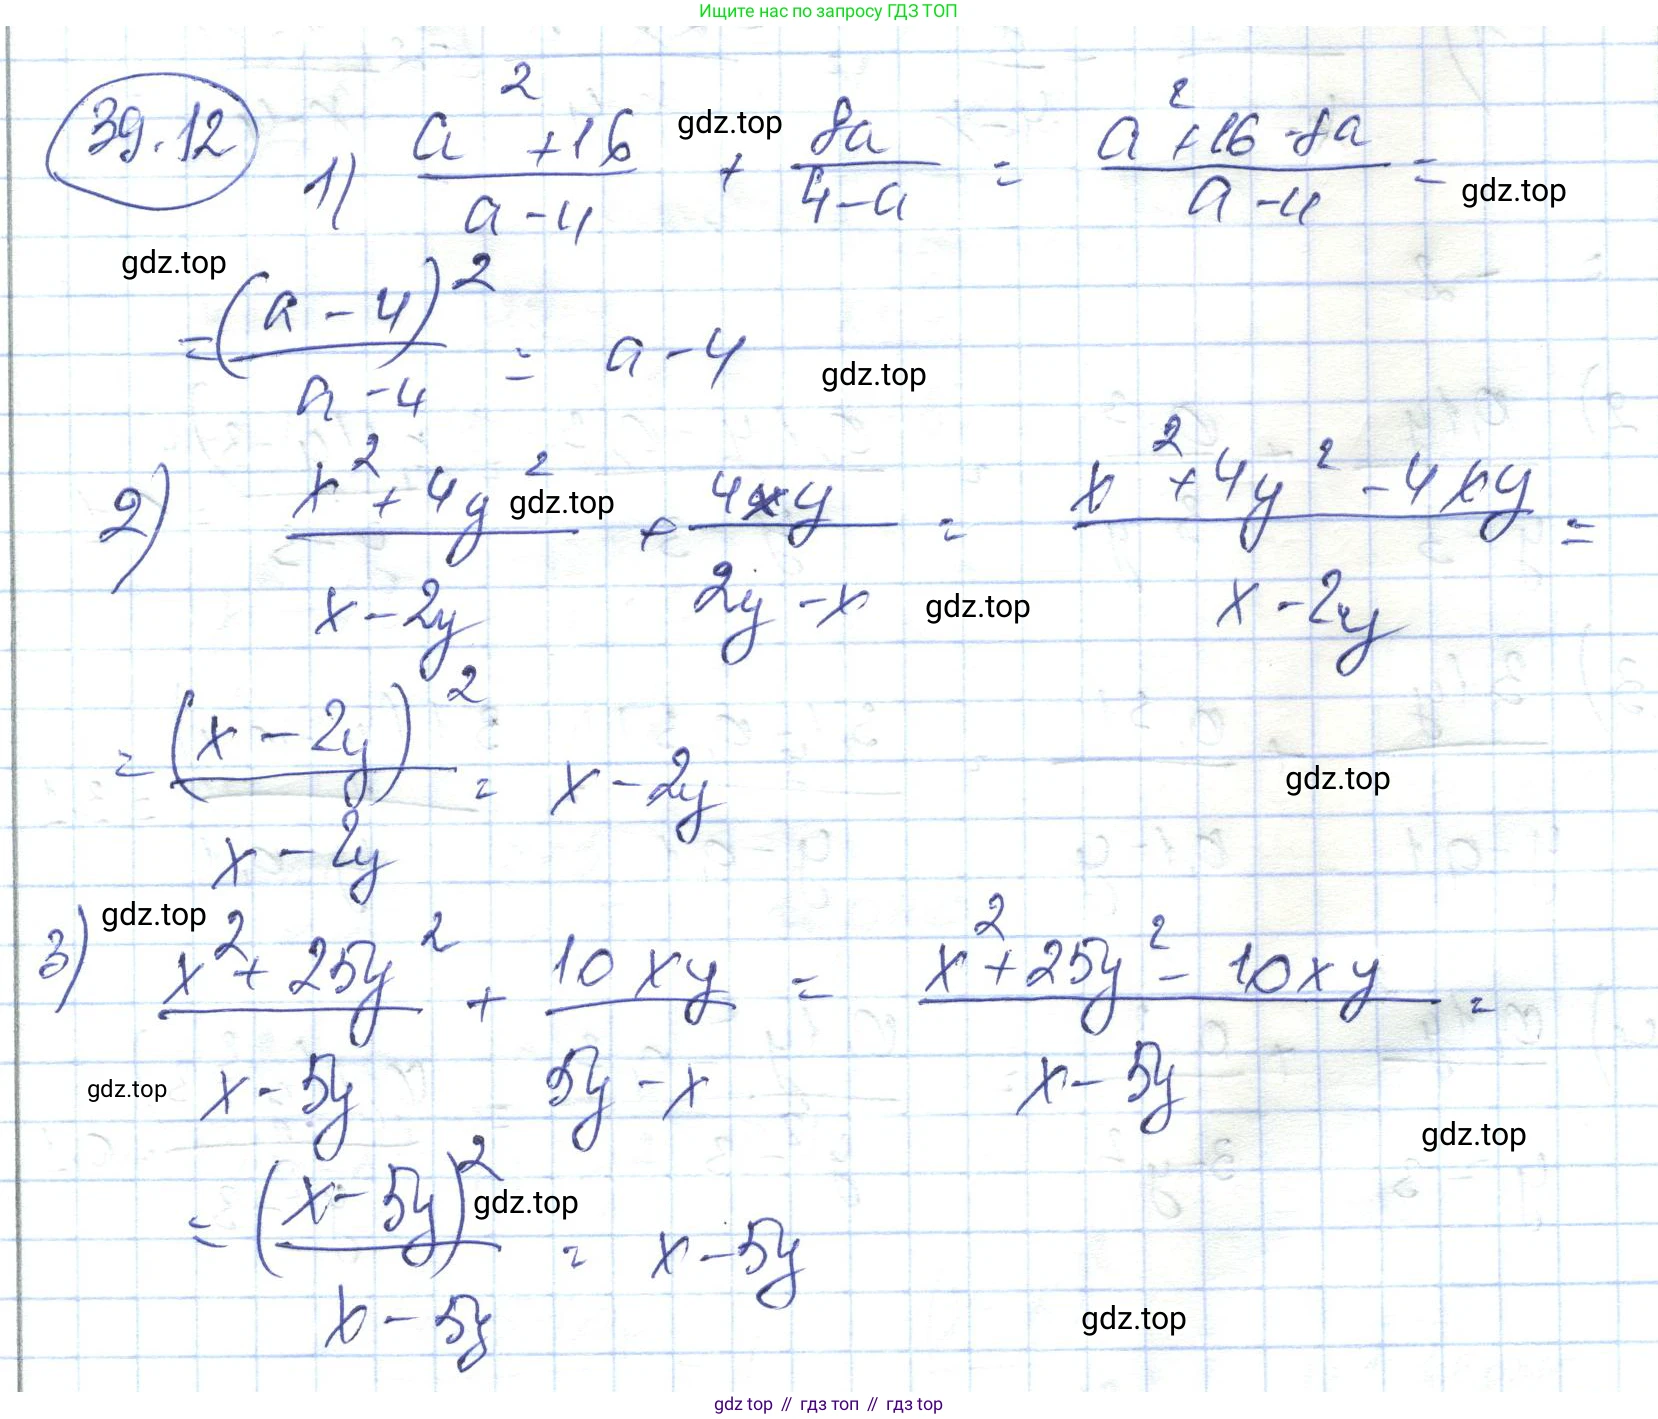 Ищите нас по запросу ГДЗ ТОП
39.12 1) (a² + 16)/(a - 4) + 8a/(4 - a) = (a² + 16 - 8a)/(a - 4) =
gdz.top
gdz.top
gdz.top
= (a - 4)²/(a - 4) = a - 4
gdz.top
2) (x² + 4y²)/(x - 2y) + 4xy/(2y - x) = (x² + 4y² - 4xy)/(x - 2y) =
gdz.top
gdz.top
= (x - 2y)²/(x - 2y) = x - 2y
gdz.top
gdz.top
3) (x² + 25y²)/(x - 5y) + 10xy/(5y - x) = (x² + 25y² - 10xy)/(x - 5y) =
gdz.top
gdz.top
= (x - 5y)²/(x - 5y) = x - 5y
gdz.top
gdz.top
gdz top // гдз топ // гдз top